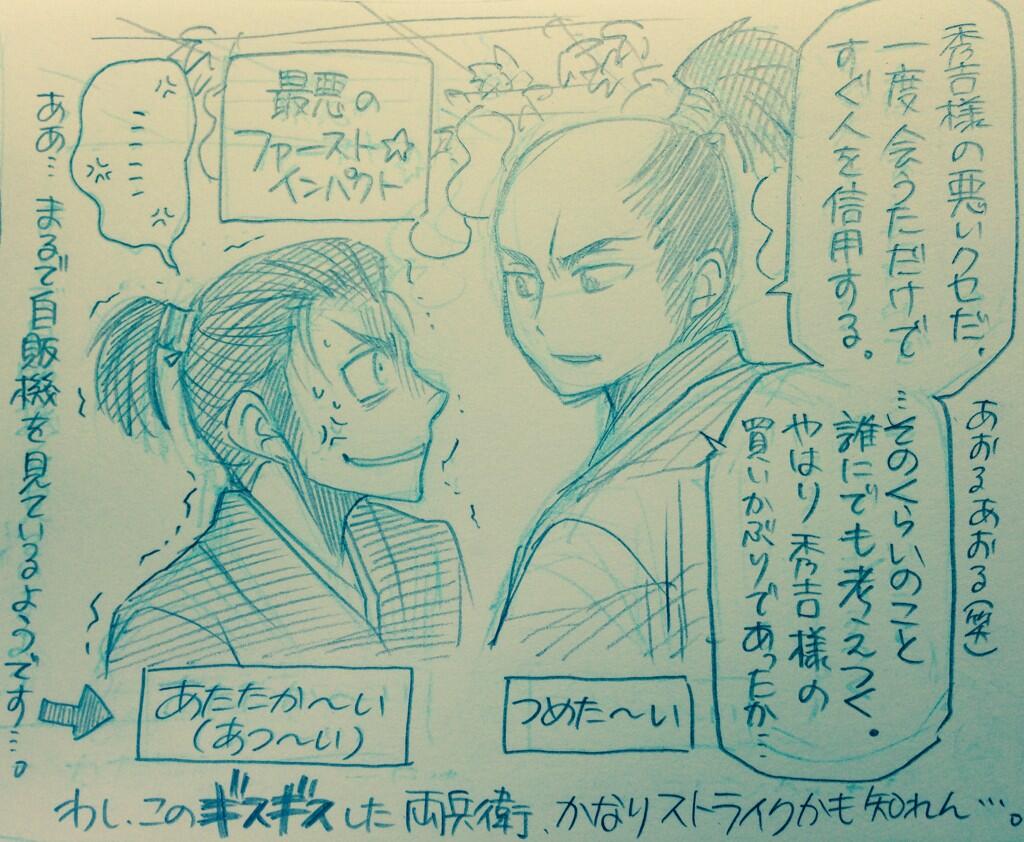 秀吉様の悪いクセだ。
一度会うただけで
すぐ人を信用する。
…そのくらいのこと
誰にでも考えつく。
やはり秀吉様の
買いかぶりであったか…
あおるあおる(笑)
最悪の
ファースト☆
インパクト
……
ああ… まるで自販機を見ているようです…。
あたたか〜い
(あつ〜い)
つめた〜い
わし、このギスギスした両兵衛、かなりストライクかも知れん…。